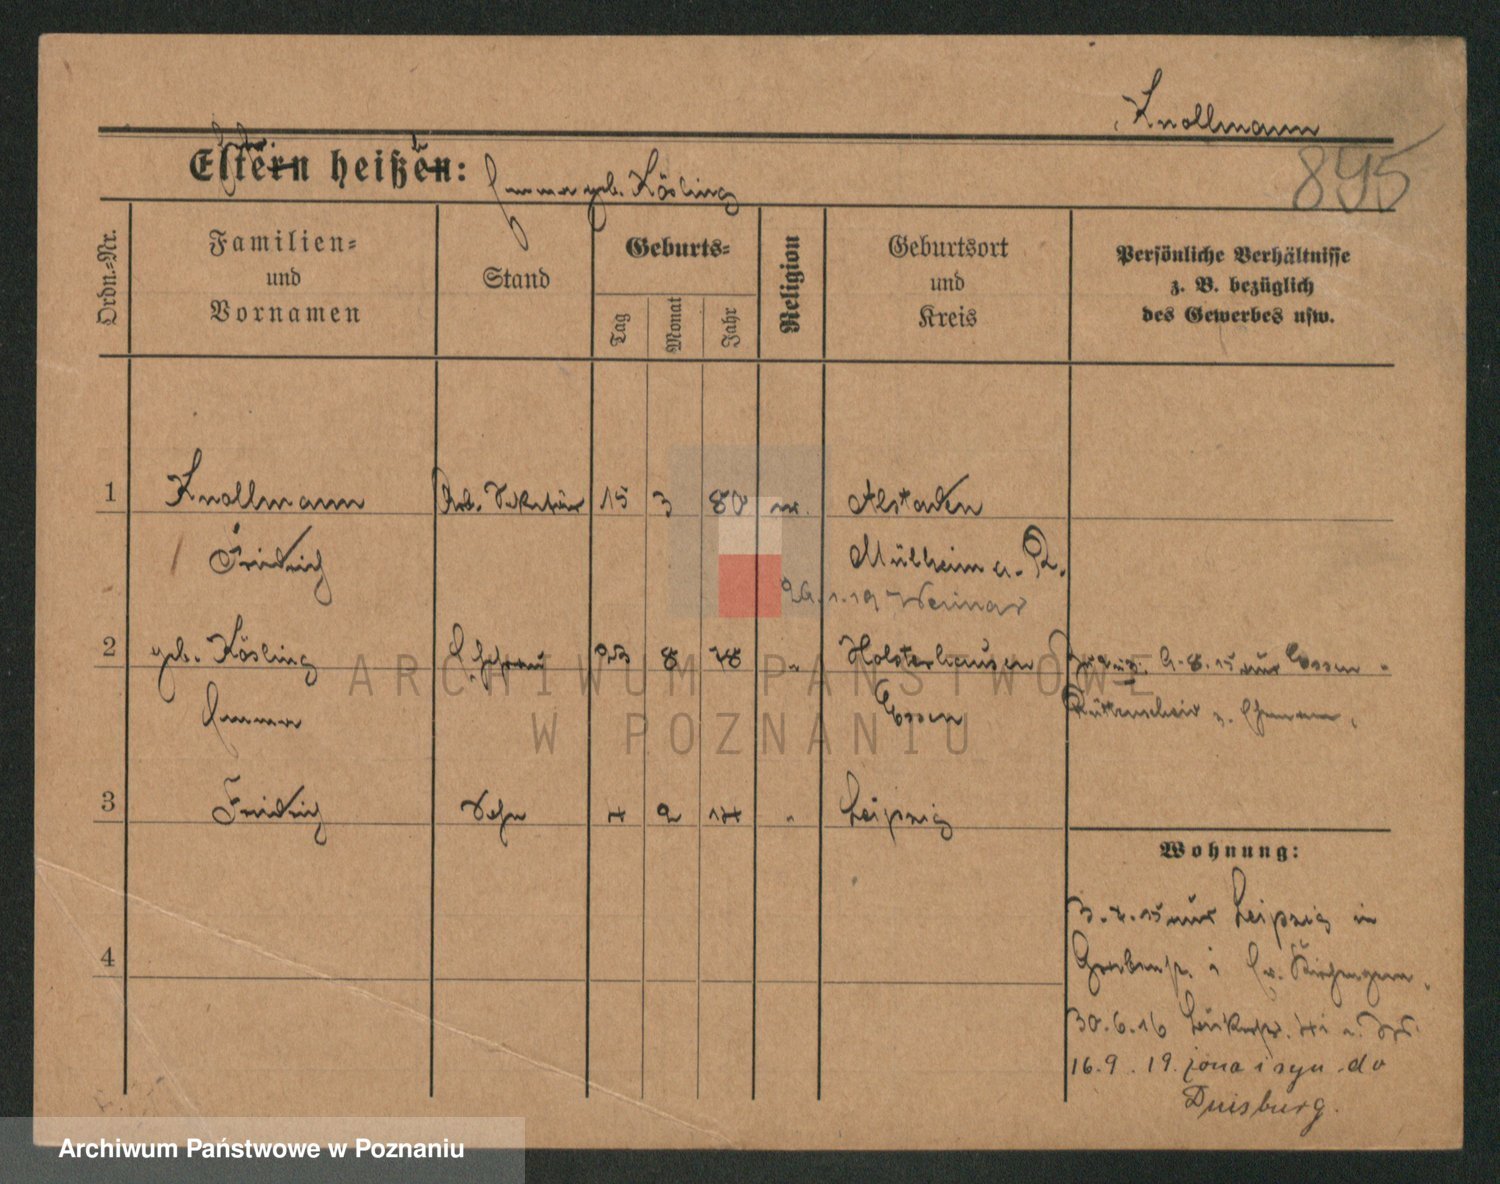 Knollmann
895
Eltern heißen: Emma geb. Kösling
Ordn.-Nr.
Familien- und Vornamen
Stand
Geburts-
Tag
Monat
Jahr
Religion
Geburtsort und Kreis
Persönliche Verhältnisse z. B. bezüglich des Gewerbes usw.
1 Knollmann Arb. Sekretär 15 3 80 Alstaden
Fridrich Mülheim a. R.
26.1.19 Weimar
2 geb. Kösling Ehefrau 23 8 78 " Holsterhausen
Emma Essen
3 Fridrich Sohn 4 2 14 " Leipzig
4
Wohnung:
3.4.15 aus Leipzig in
30.6.16
16.9.19. żona i syn do
Duisburg.
ARCHIWUM PAŃSTWOWE
W POZNANIU
Archiwum Państwowe w Poznaniu